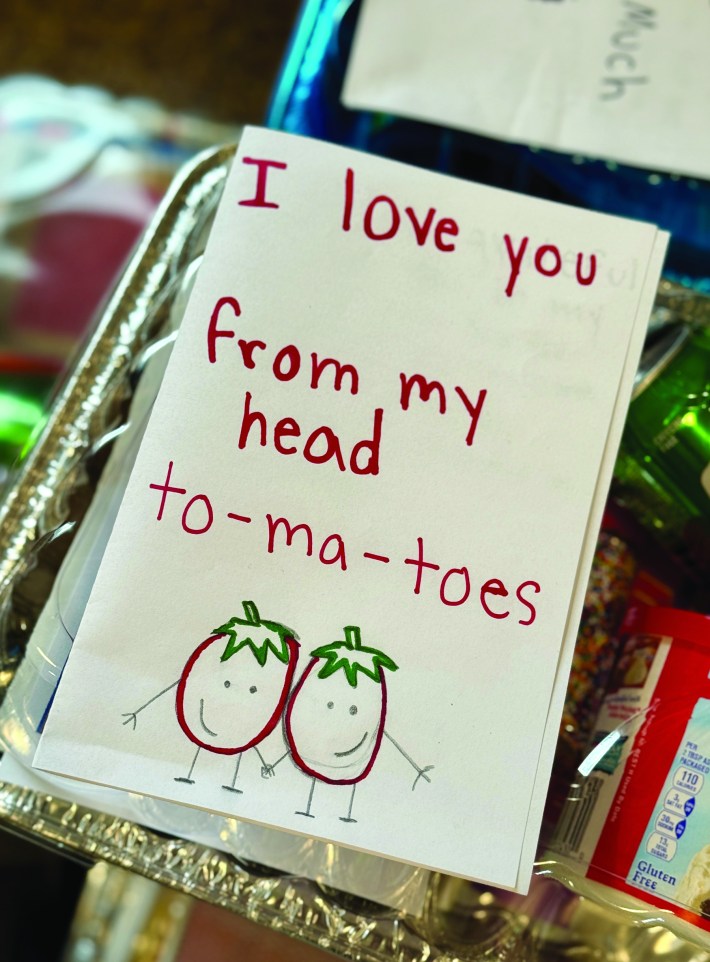 Much
I love you
from my
head
to-ma-toes
PER
2 TBSP AS
PACKAGED
110
CALORIES
TOTAL
SUGARS
Gluten
Free